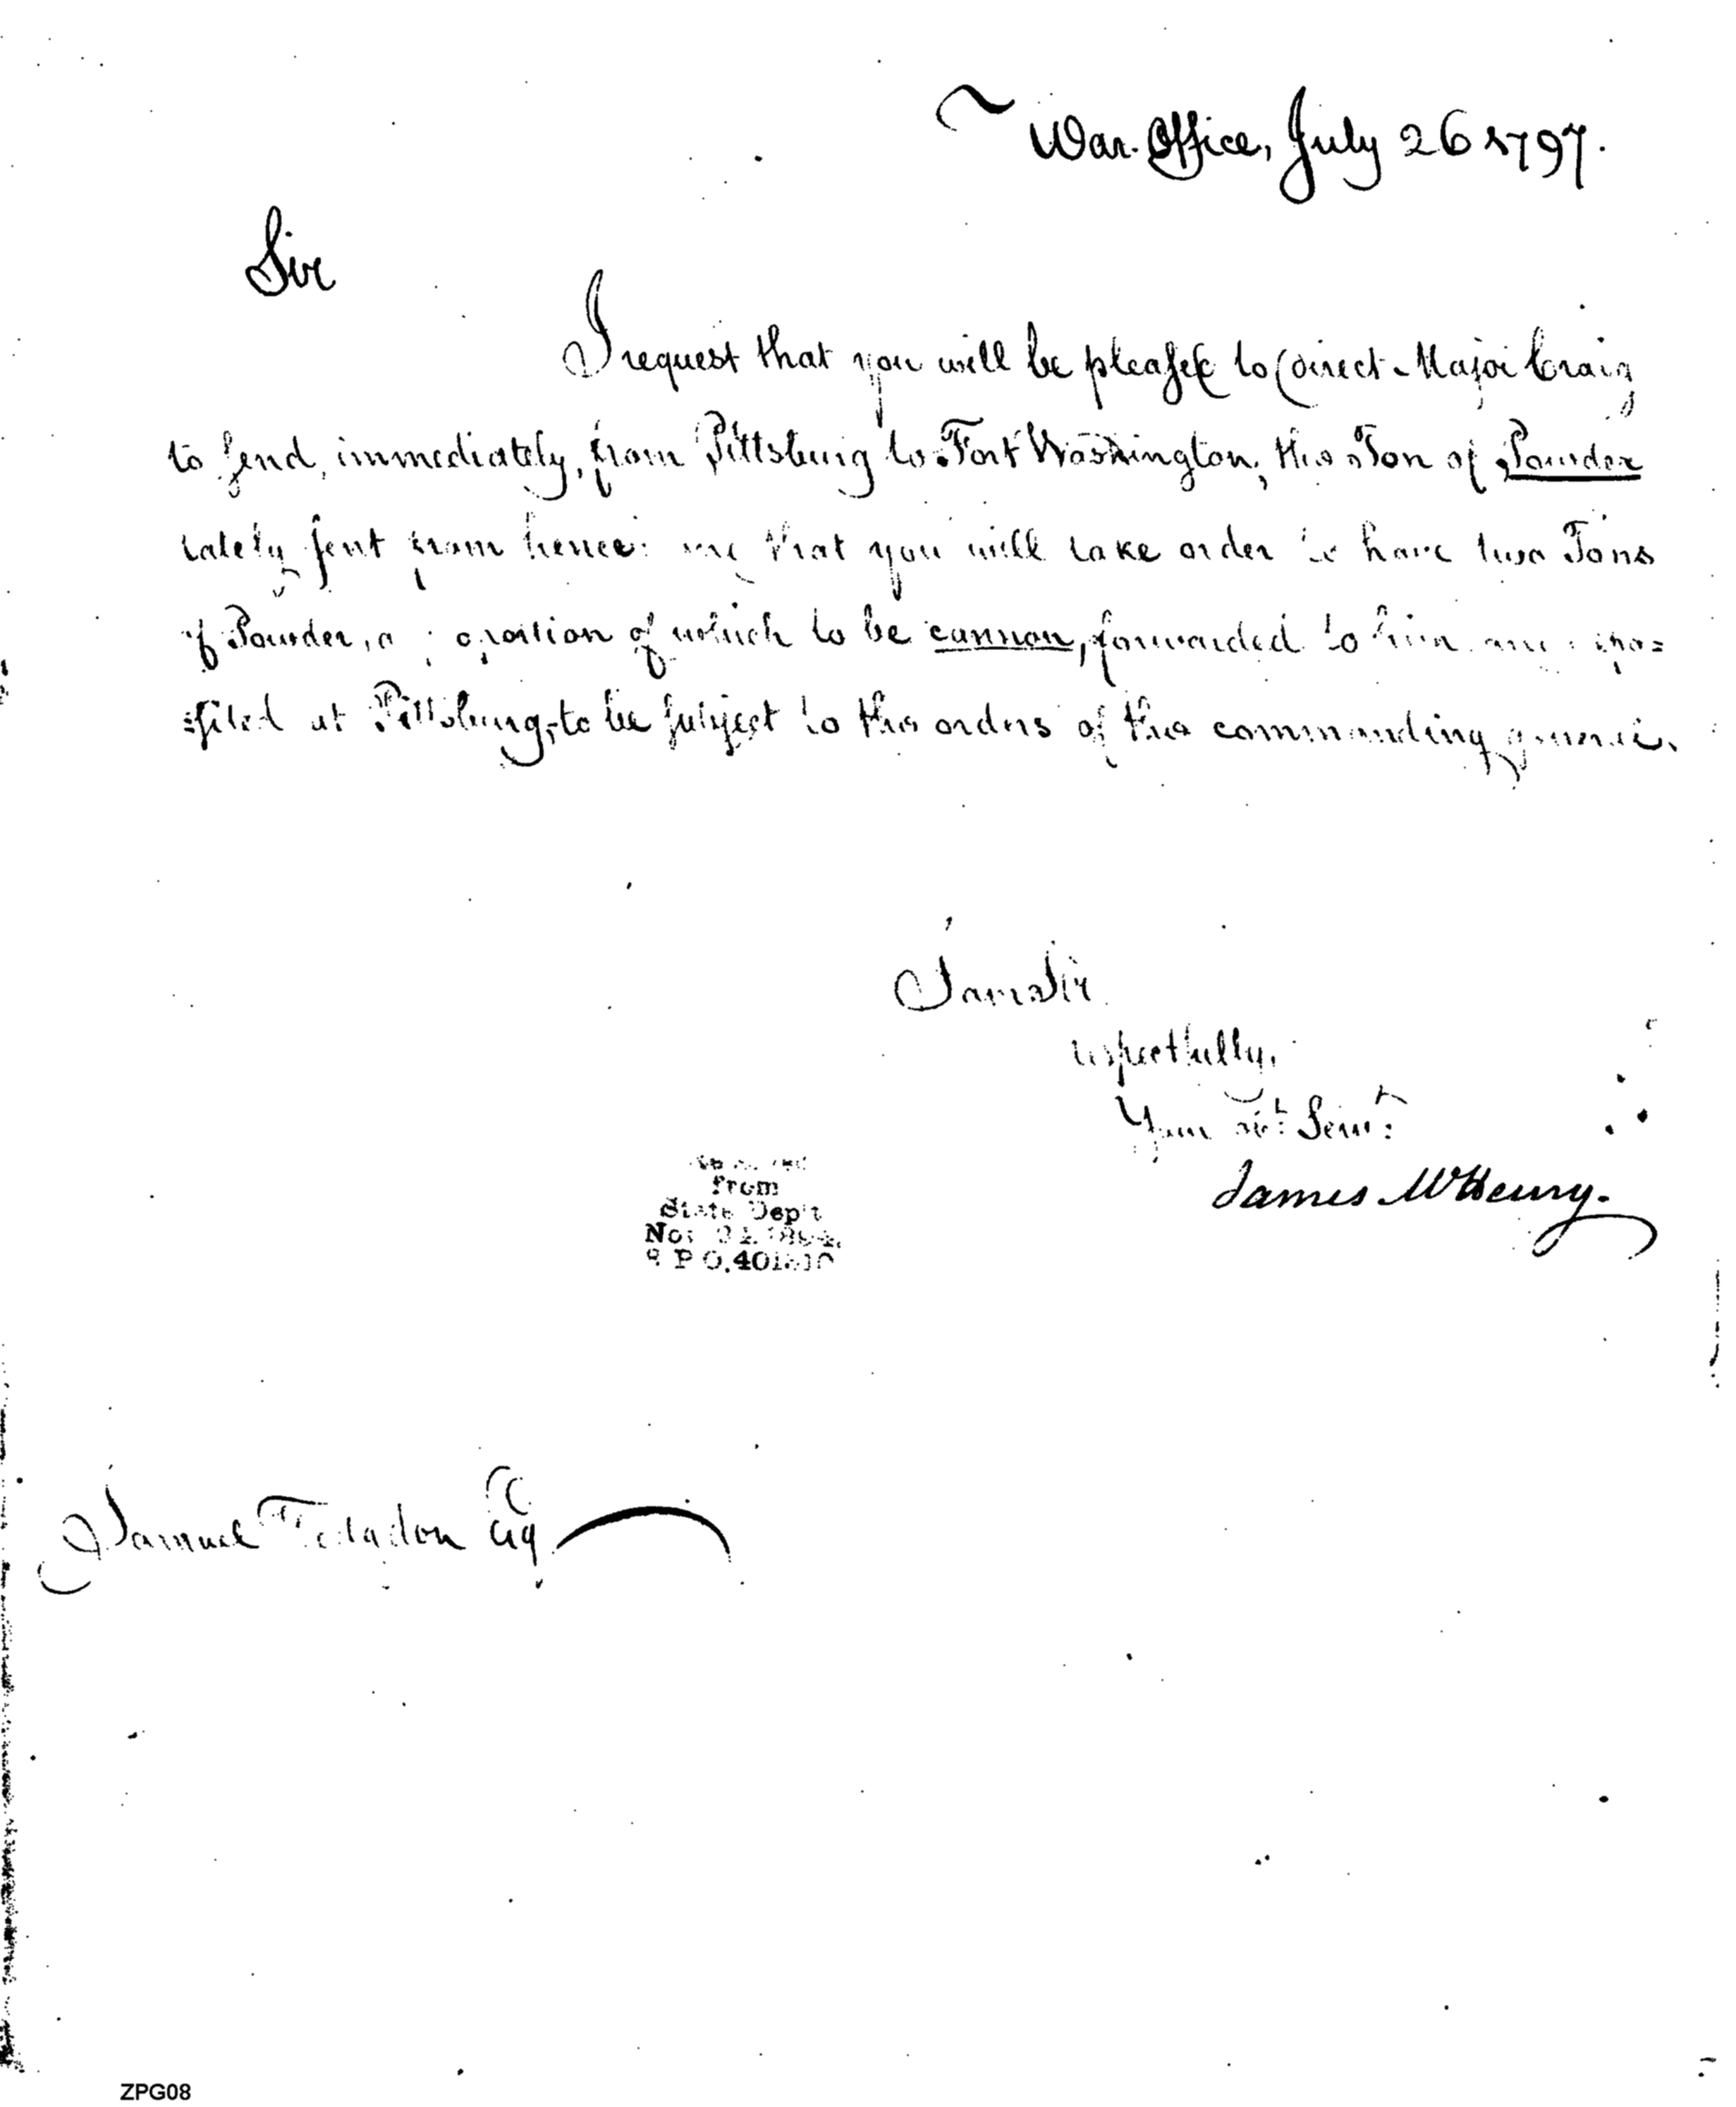 War Office, July 26 1797.
Sir
I request that you will be pleased to direct Major Craig
to send, immediately, from Pittsburg to Fort Washington, the Ton of Powder
lately sent from hence: and that you will take order to have two Tons
of Powder, a proportion of which to be cannon, forwarded to him and depo=
=sited at Pittsburg, to be subject to the orders of the commanding general.
I am Sir
respectfully,
Your obt. Servt.
James McHenry.
from
State Dep't
Samuel Esq
ZPG08